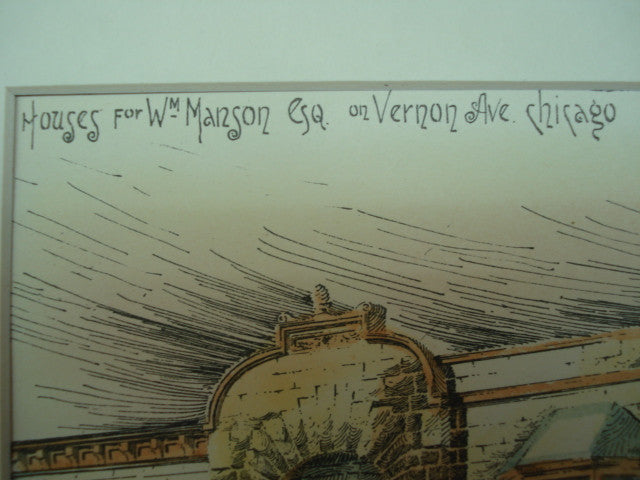 Houses for Wm Manson Esq. on Vernon Ave. Chicago